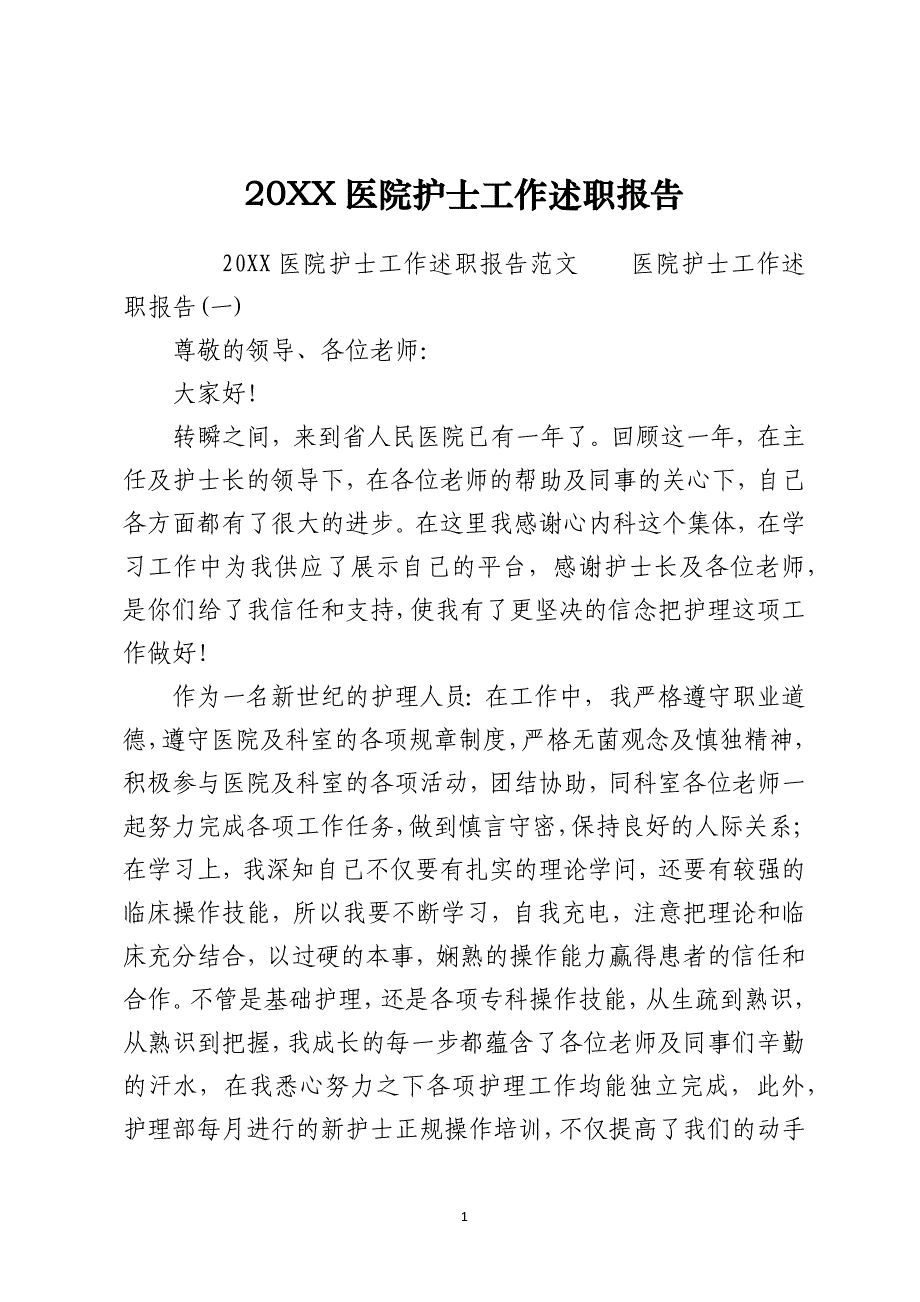 20XX 医院护士工作述职报告
20XX 医院护士工作述职报告范文 医院护士工作述
职报告(一)
尊敬的领导、各位老师:
大家好!
转瞬之间，来到省人民医院已有一年了。回顾这一年，在主
任及护士长的领导下，在各位老师的帮助及同事的关心下，自己
各方面都有了很大的进步。在这里我感谢心内科这个集体，在学
习工作中为我供应了展示自己的平台，感谢护士长及各位老师，
是你们给了我信任和支持，使我有了更坚决的信念把护理这项工
作做好!
作为一名新世纪的护理人员:在工作中，我严格遵守职业道
德，遵守医院及科室的各项规章制度，严格无菌观念及慎独精神，
积极参与医院及科室的各项活动，团结协助，同科室各位老师一
起努力完成各项工作任务，做到慎言守密，保持良好的人际关系;
在学习上，我深知自己不仅要有扎实的理论学问，还要有较强的
临床操作技能，所以我要不断学习，自我充电，注意把理论和临
床充分结合，以过硬的本事，娴熟的操作能力赢得患者的信任和
合作。不管是基础护理，还是各项专科操作技能，从生疏到熟识，
从熟识到把握，我成长的每一步都蕴含了各位老师及同事们辛勤
的汗水，在我悉心努力之下各项护理工作均能独立完成，此外，
护理部每月进行的新护士正规操作培训，不仅提高了我们的动手
1